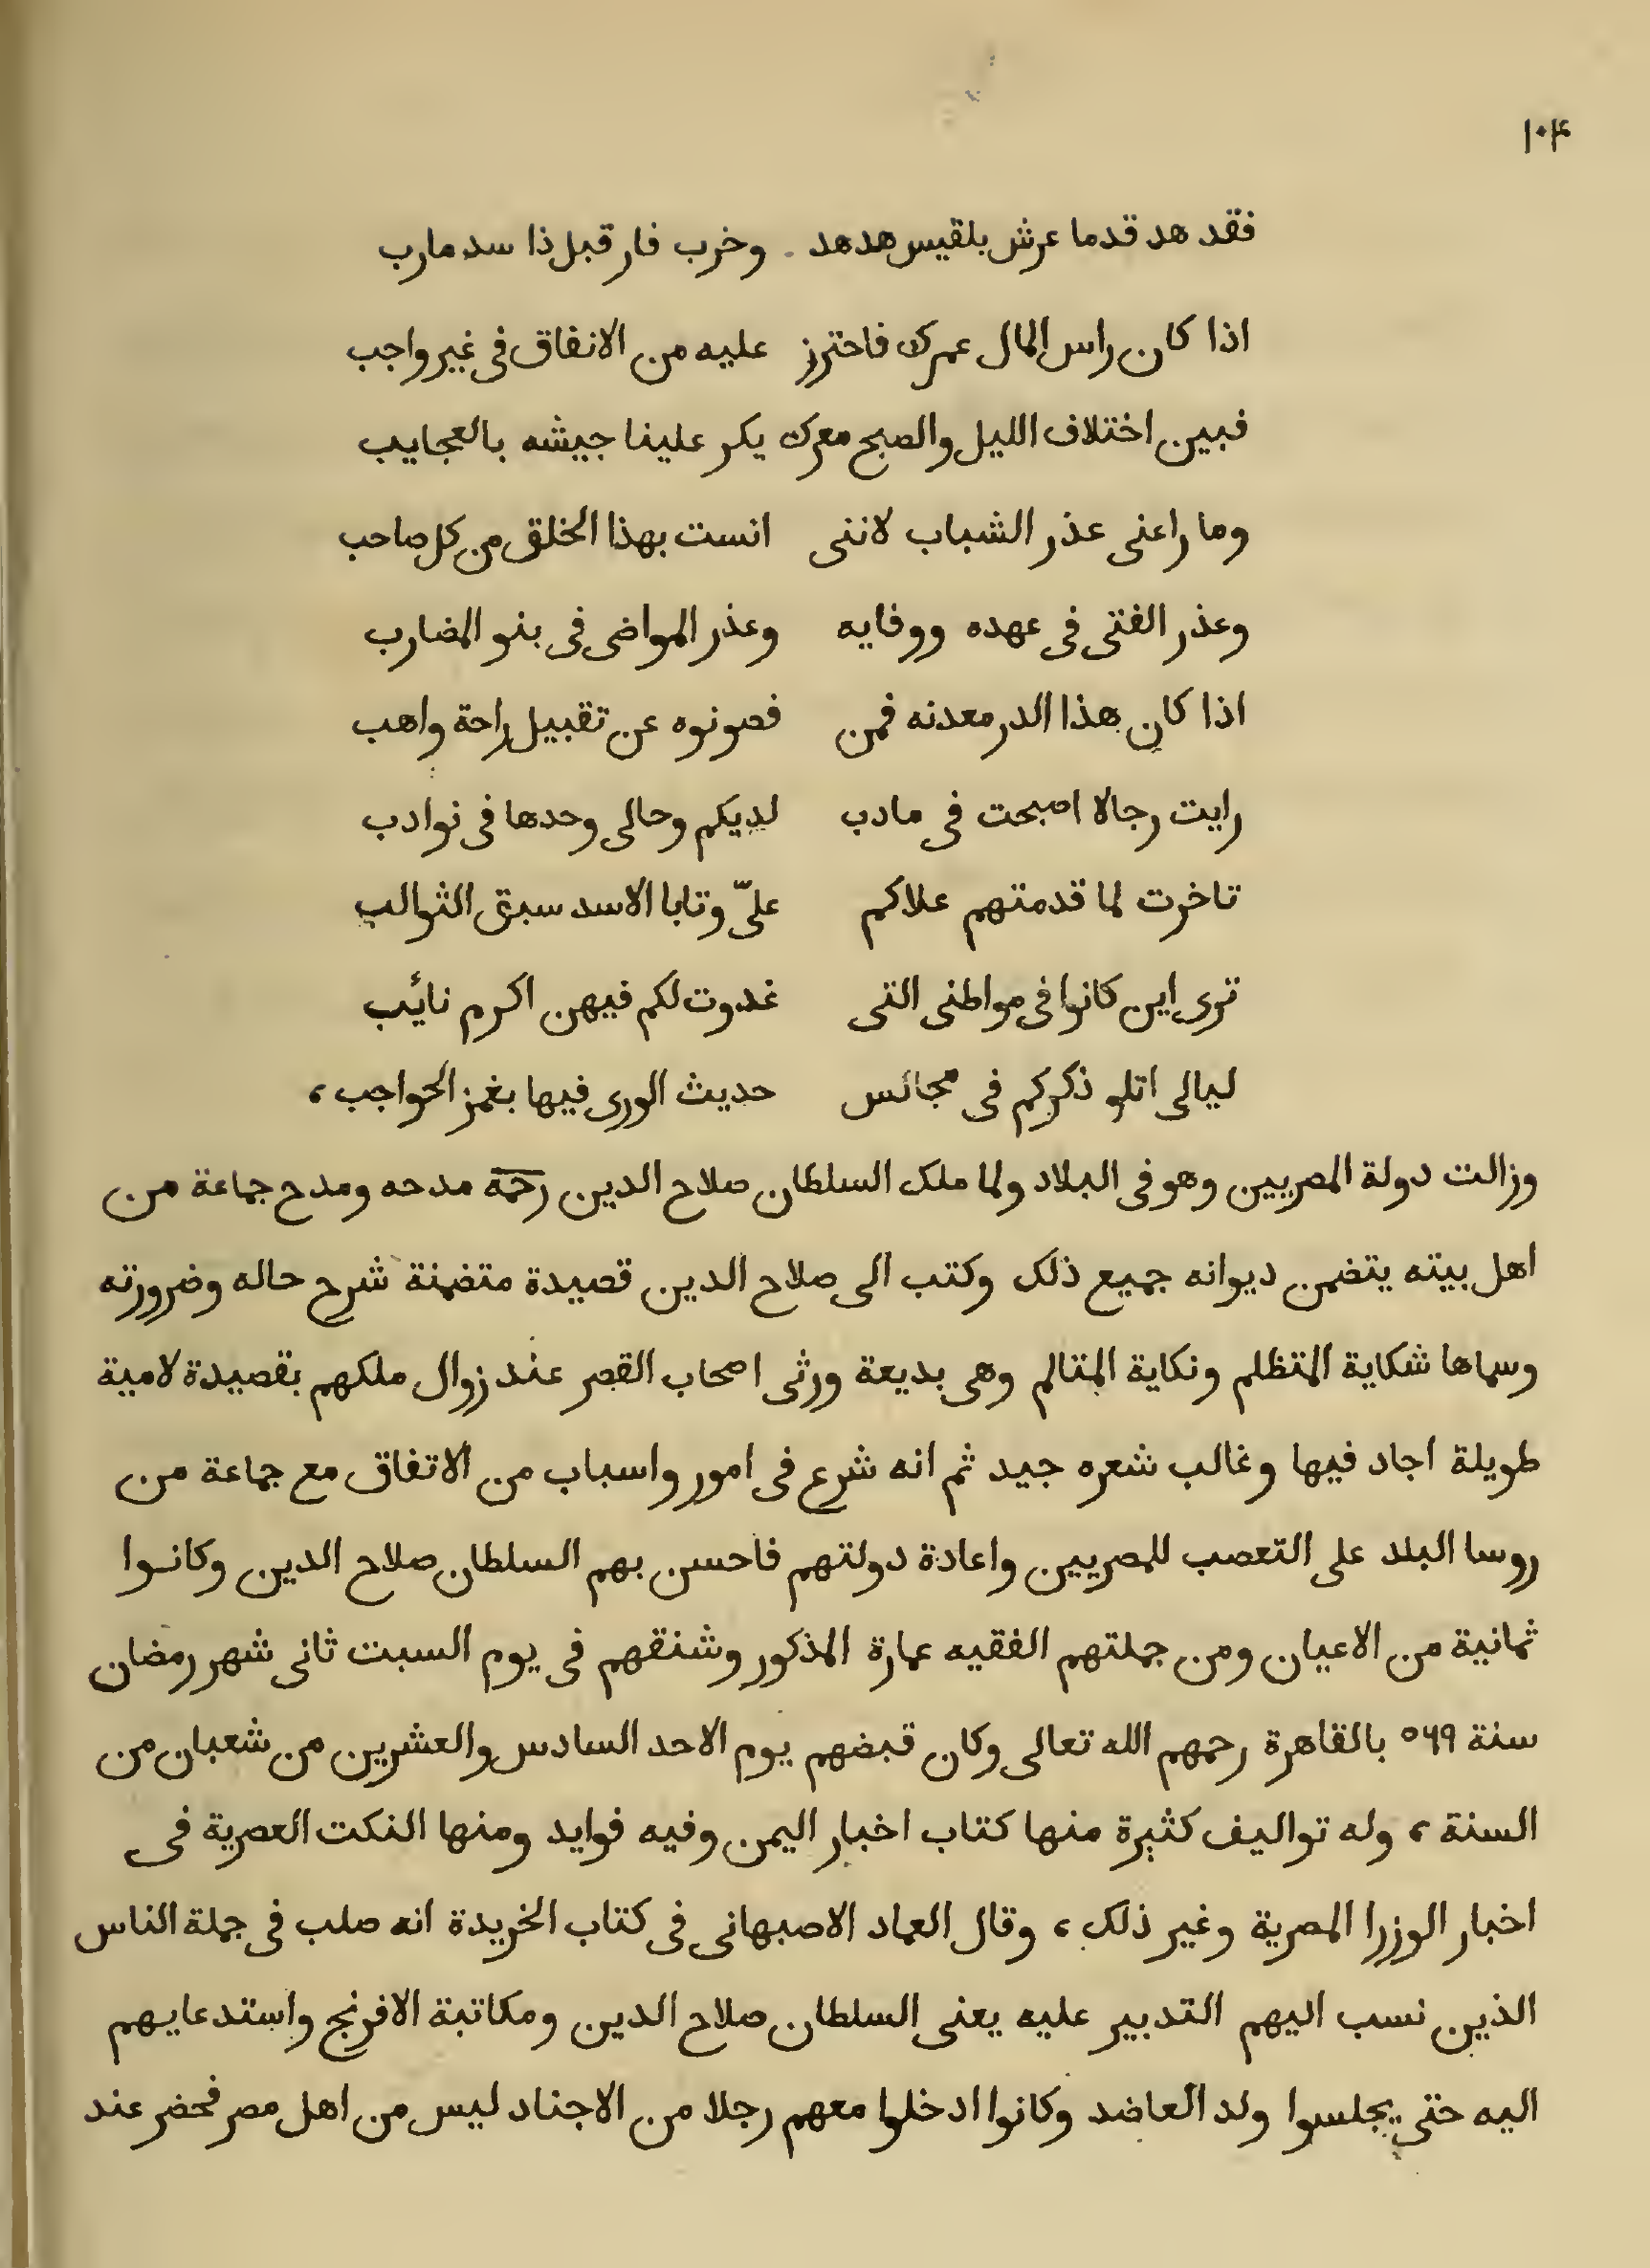 ١٠٤
فقد هد قدما عرش بلقيس هدهد وخرب فار قبل ذا سد مارب
اذا كان راس المال عمرك فاحترز عليه من الانفاق فى غير واجب
فبين اختلاف الليل والصبح معرك يكر علينا جيشه بالعجايب
وما راعنى عذر الشباب لاننى انست بهذا الخلق من كل صاحب
وعذر الفتى فى عهده ووفايه وعذر المواضى فى بنو المضارب
اذا كان هذا الدر معدنه فمن فصونوه عن تقبيل راحة واهب
رايت رجالا اصبحت فى مادب لديكم وحالى وحدها فى نوادب
تاخرت لما قدمتهم علاكم علىّ وتابا الاسد سبق الثوالب
ترى اين كانوا فى مواطنى التى غدوت لكم فيهن اكرم نائب
ليالى اتلو ذكركم فى مجالس حديث الورى فيها بغمز الحواجب ،
وزالت دولة المصريين وهو فى البلاد ولما ملك السلطان صلاح الدين رحمه مدحه ومدح جماعة من
اهل بيته يتضمن ديوانه جميع ذلك وكتب الى صلاح الدين قصيدة متضمنة شرح حاله وضرورته
وسماها شكاية المتظلم ونكاية المتالم وهى بديعة ورثى اصحاب القصر عند زوال ملكهم بقصيدة لامية
طويلة اجاد فيها وغالب شعره جيد ثم انه شرع فى امور واسباب من الاتفاق مع جماعة من
روسا البلد على التعصب للمصريين واعادة دولتهم فاحسن بهم السلطان صلاح الدين وكانوا
ثمانية من الاعيان ومن جملتهم الفقيه عمارة المذكور وشنقهم فى يوم السبت ثانى شهر رمضان
سنة ٥٦٩ بالقاهرة رحمهم الله تعالى وكان قبضهم يوم الاحد السادس والعشرين من شعبان من
السنة ، وله تواليف كثيرة منها كتاب اخبار اليمن وفيه فوايد ومنها النكت العصرية فى
اخبار الوزرا المصرية وغير ذلك ، وقال العماد الاصبهانى فى كتاب الخريدة انه صلب فى جملة الناس
الذين نسب اليهم التدبير عليه يعنى السلطان صلاح الدين ومكاتبة الافرنج واستدعايهم
اليه حتى يجلسوا ولد العاضد وكانوا ادخلوا معهم رجلا من الاجناد ليس من اهل مصر فحضر عند